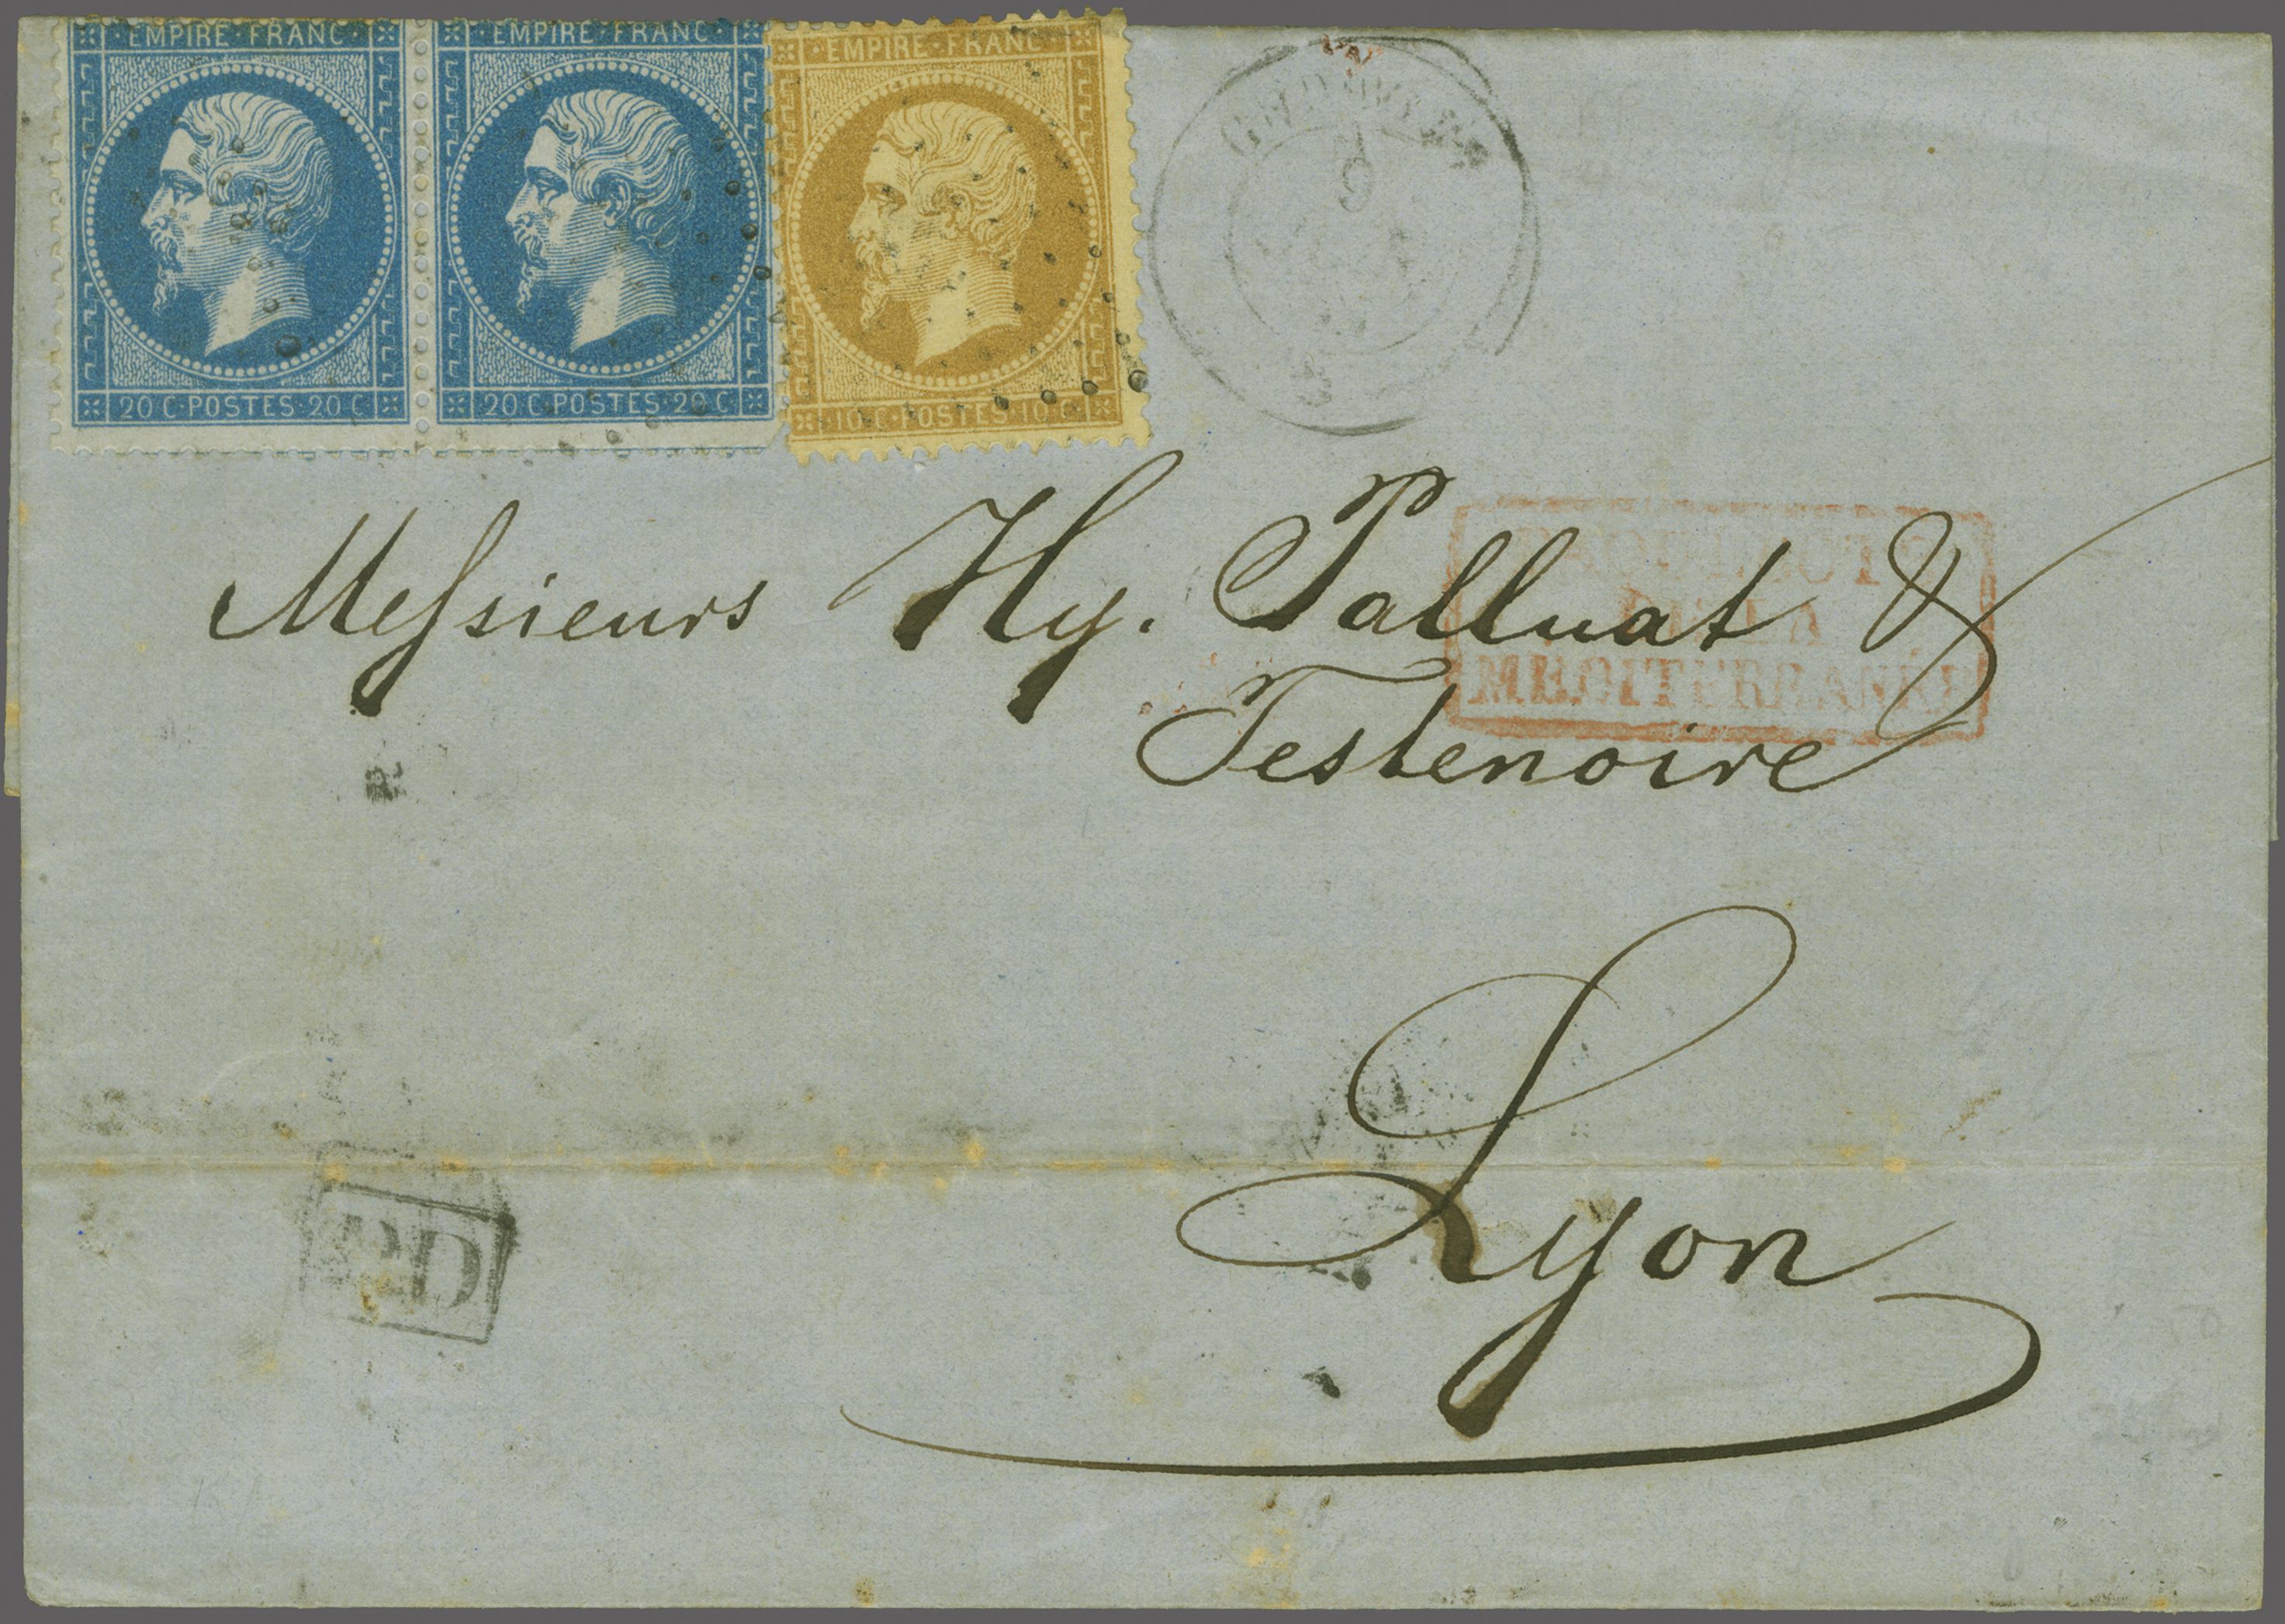 EMPIRE · FRANC ·
EMPIRE · FRANC ·
· EMPIRE · FRANC ·
20 C · POSTES · 20 C
20 C · POSTES · 20 C
· 10 C · POSTES · 10 C ·
Messieurs Hy. Palluat &
Testenoire
Lyon
PAQUEBOTS
DE LA
MEDITERRANÉE
PD